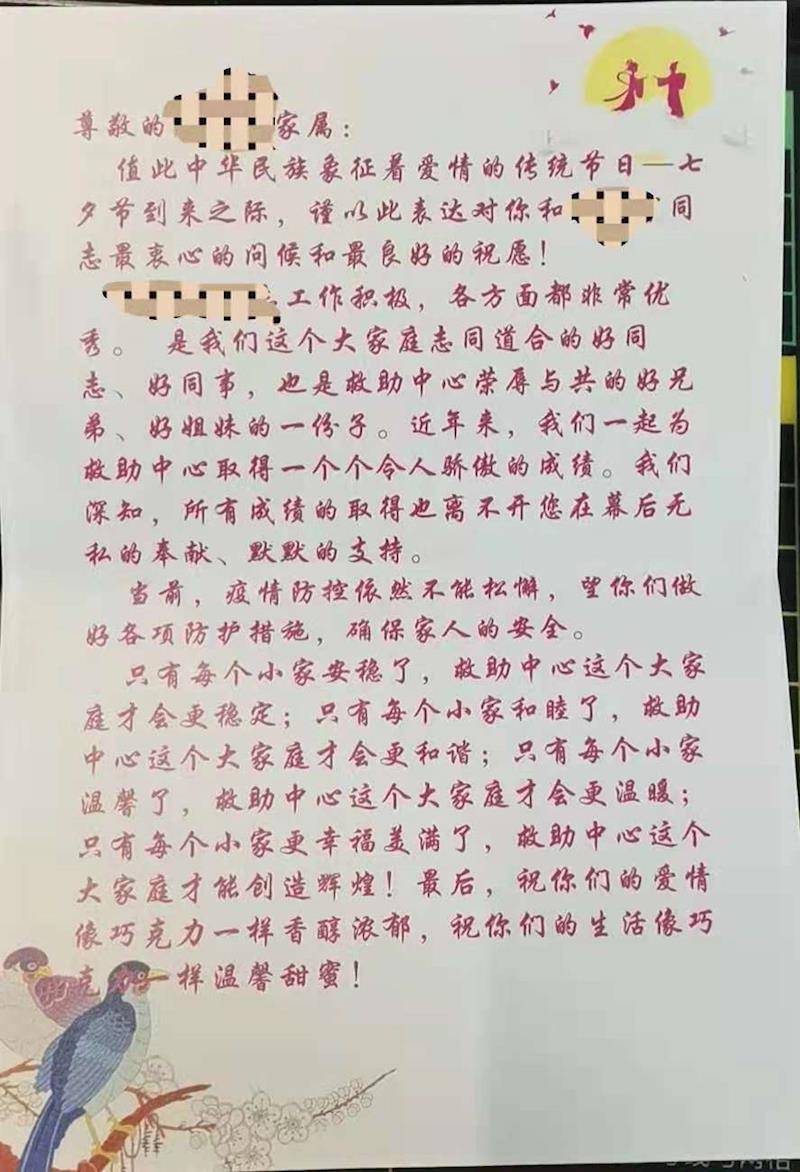 尊敬的家属：
值此中华民族象征着爱情的传统节日—七
夕节到来之际，谨以此表达对你和同
志最衷心的问候和最良好的祝愿！
工作积极，各方面都非常优
秀。 是我们这个大家庭志同道合的好同
志、好同事，也是救助中心荣辱与共的好兄
弟、好姐妹的一份子。近年来，我们一起为
救助中心取得一个个令人骄傲的成绩。我们
深知，所有成绩的取得也离不开您在幕后无
私的奉献、默默的支持。
当前，疫情防控依然不能松懈，望你们做
好各项防护措施，确保家人的安全。
只有每个小家安稳了，救助中心这个大家
庭才会更稳定；只有每个小家和睦了，救助
中心这个大家庭才会更和谐；只有每个小家
温馨了，救助中心这个大家庭才会更温暖；
只有每个小家更幸福美满了，救助中心这个
大家庭才能创造辉煌！最后，祝你们的爱情
像巧克力一样香醇浓郁，祝你们的生活像巧
克力一样温馨甜蜜！